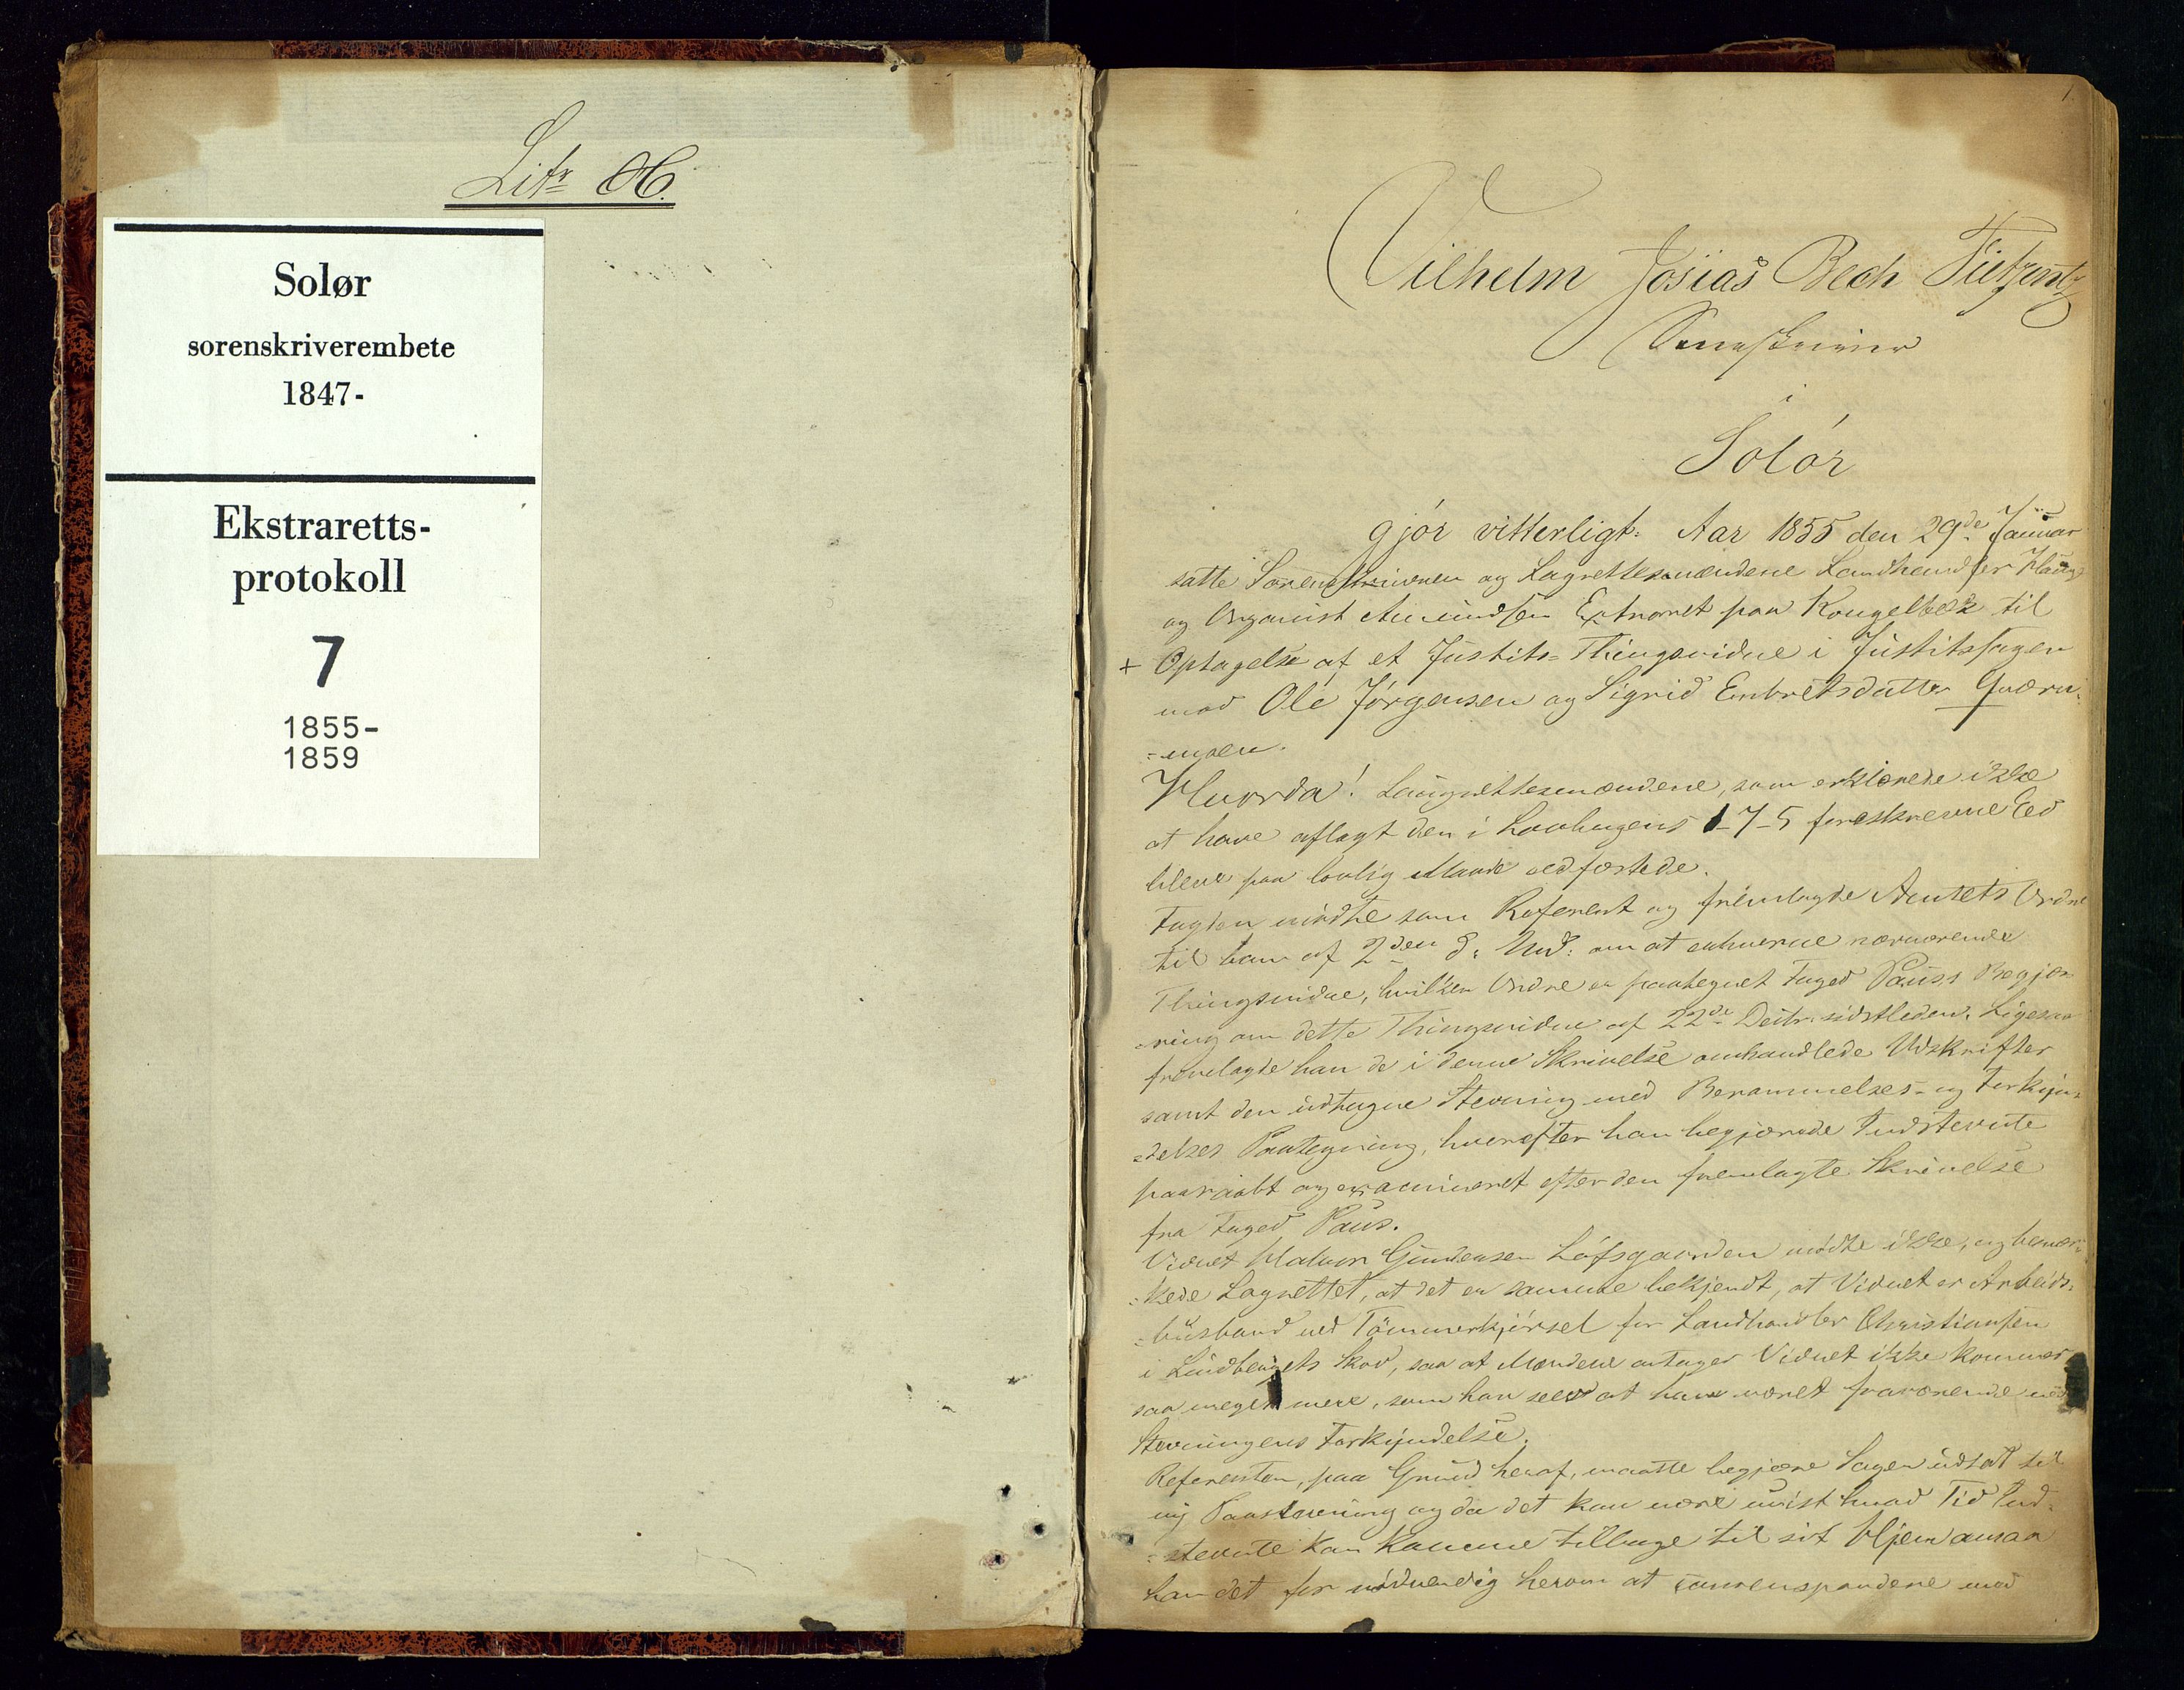 Litr H.
Solør
sorenskriverembete
1847-
Ekstraretts-
protokoll
7
1855-
1859
1.
Vilhelm Josias Bech
Sorenskriver
i
Solör
gjör vitterligt: Aar 1855 den 29de Januar
satte Sorenskriveren og Lagrettesmændene Landhandler Haug
og Organist Amundsen Extraret paa Kongelbæk til
+ Optagelse af et Justits-Thingsvidne i Justitssagen
mod Ole Jörgensen og Sigrid Embretsdatter Qværn-
=moen.
Hvorda! Laugrettesmændene, som erklærede ikke
at have aflagt den i Lovbogens 1-7-5 foreskrevne Eed
bleve paa lovlig Maade edfæstede.
Fogden mödte som Referent og fremlagde Amtets Ordre
til ham af 2den d: Md: om at erhverve nærværende
Thingsvidne, hvilken Ordre er paategnet Foged Paus's Begjæ-
=ring om dette Thingsvidne af 22de Decbr. sidstleden. Ligesaa
fremlagde han de i denne Skrivelse omhandlede Udskrifter
samt den udtagne Stevning med Berammelses- og Forkyn-
=delses Paategning, hvorefter han begjærede Indstevnte
paaraabt og examineret efter den fremlagte Skrivelse
fra Foged Paus.
Vidnet Halvor Gundersen Löfsgaarden mödte ikke, og bemær-
=kede Lagrettet, at det er samme bekjendt, at Vidnet er Arbeids-
=husbond ved Tömmerkjörsel for Landhandler Christiansen
i Lindbergets Skov, saa at Mændene antager Vidnet ikke kommer
saa meget mere, som han sees at have været fraværende ved
Stevningens Forkyndelse.
Referenten, paa Grund heraf, maatte begjære Sagen udsat til
ny Paastevning og da det kan være uvist hvad Tid Ind-
=stevnte kan komme tilbage til sit Hjem ansaa
han det for nödvendig herom at correspondere med